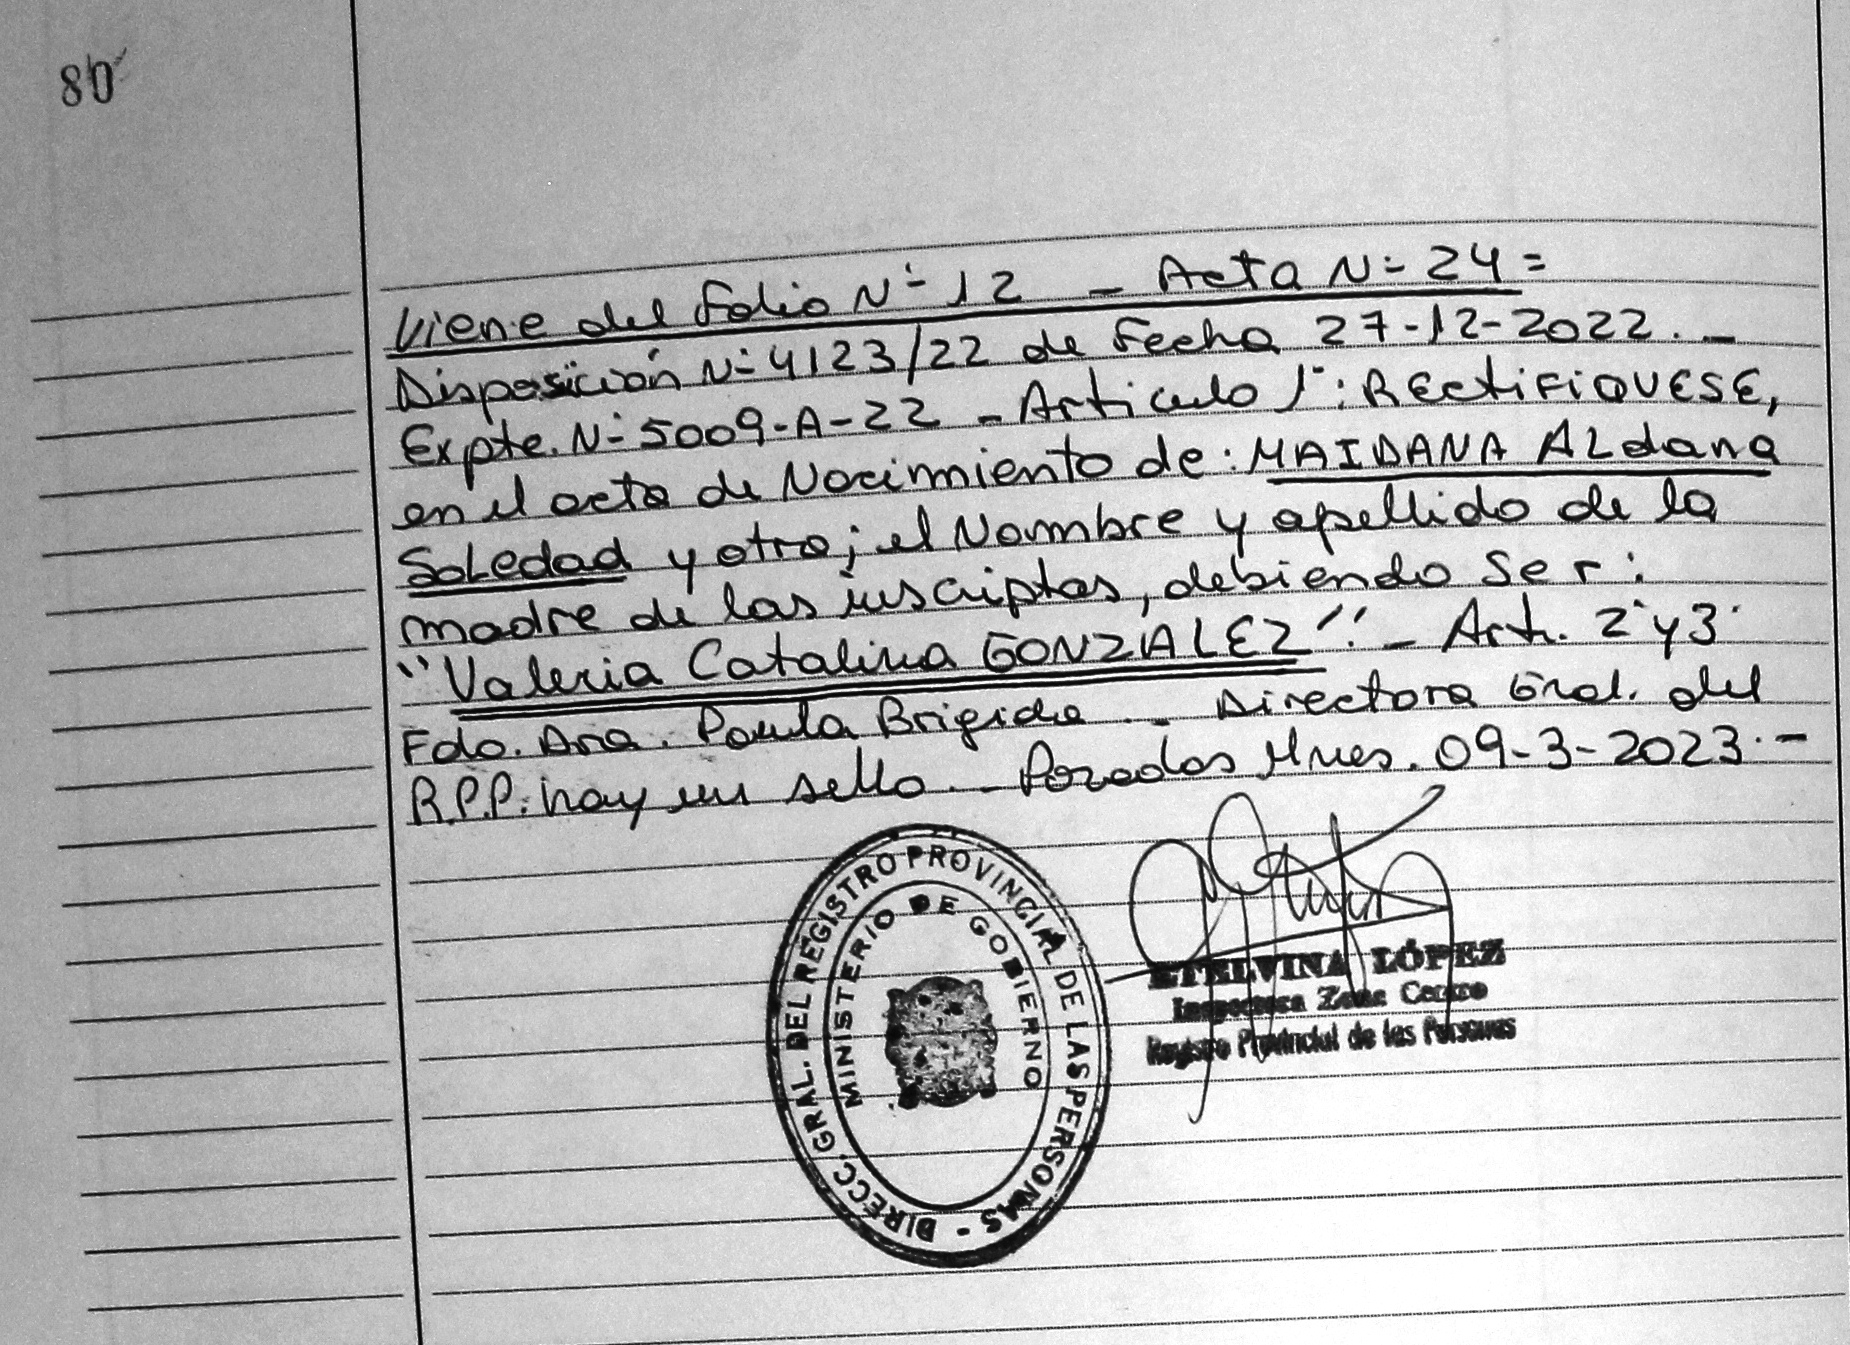 80
Viene del folio N° 12 - Acta N° 24 =
Disposición N° 4123/22 de Fecha 27-12-2022. -
Expte. N° 5009-A-22 - Articulo 1°: RECtiFiQUESE,
en el acta de Nacimiento de: MAIDANA ALdana
SoLedad y otra; el Nombre y apellido de la
madre de las inscriptas, debiendo ser:
"Valeria Catalina GONZALEZ". - Art. 2° y 3°
Fdo. Dra. Paula Brigida - Directora Gral. del
R.P.P. hay un sello. - Posadas Mnes. 09-3-2023. -
DIRECC. GRAL. DEL REGISTRO PROVINCIAL DE LAS PERSONAS -
MINISTERIO DE GOBIERNO
ETELVINA LÓPEZ
Inspectora Zona Centro
Registro Provincial de las Personas